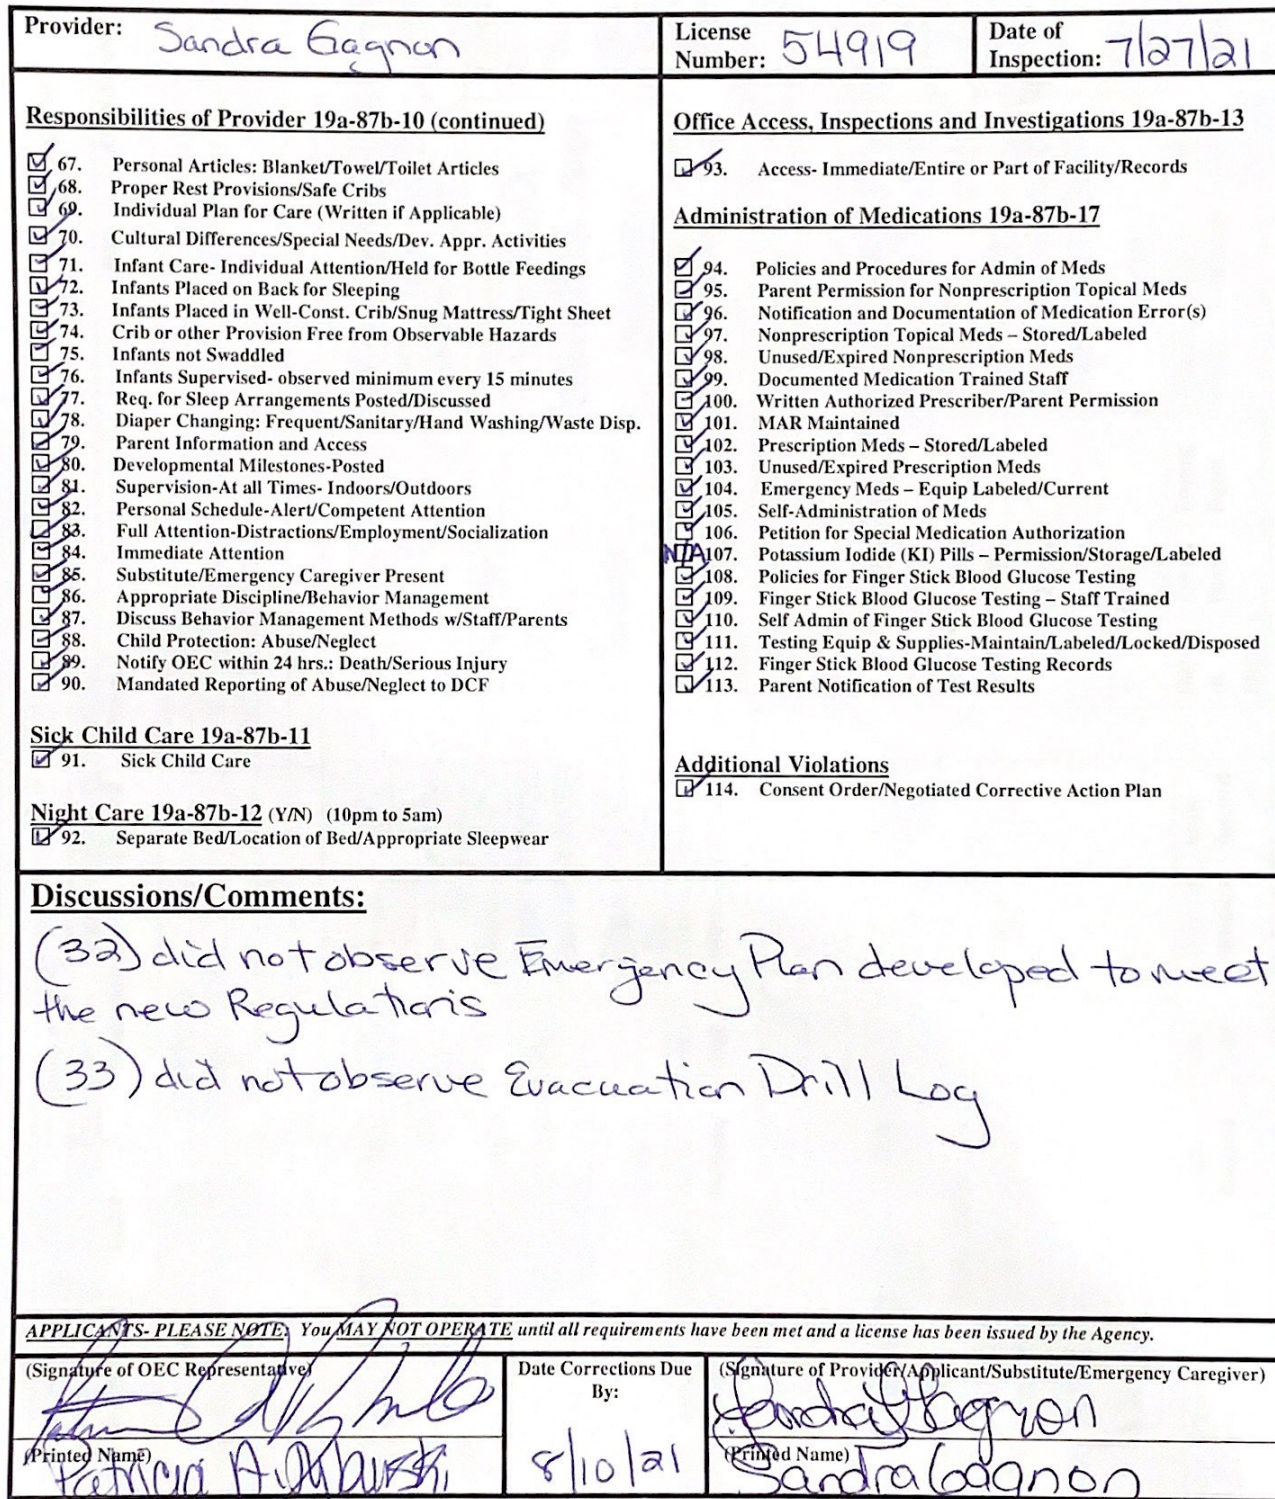 Provider: Sandra Gagnon
License Number: 54919
Date of Inspection: 7/27/21
Responsibilities of Provider 19a-87b-10 (continued)
67. Personal Articles: Blanket/Towel/Toilet Articles
68. Proper Rest Provisions/Safe Cribs
69. Individual Plan for Care (Written if Applicable)
70. Cultural Differences/Special Needs/Dev. Appr. Activities
71. Infant Care- Individual Attention/Held for Bottle Feedings
72. Infants Placed on Back for Sleeping
73. Infants Placed in Well-Const. Crib/Snug Mattress/Tight Sheet
74. Crib or other Provision Free from Observable Hazards
75. Infants not Swaddled
76. Infants Supervised- observed minimum every 15 minutes
77. Req. for Sleep Arrangements Posted/Discussed
78. Diaper Changing: Frequent/Sanitary/Hand Washing/Waste Disp.
79. Parent Information and Access
80. Developmental Milestones-Posted
81. Supervision-At all Times- Indoors/Outdoors
82. Personal Schedule-Alert/Competent Attention
83. Full Attention-Distractions/Employment/Socialization
84. Immediate Attention
85. Substitute/Emergency Caregiver Present
86. Appropriate Discipline/Behavior Management
87. Discuss Behavior Management Methods w/Staff/Parents
88. Child Protection: Abuse/Neglect
89. Notify OEC within 24 hrs.: Death/Serious Injury
90. Mandated Reporting of Abuse/Neglect to DCF
Sick Child Care 19a-87b-11
91. Sick Child Care
Night Care 19a-87b-12 (Y/N) (10pm to 5am)
92. Separate Bed/Location of Bed/Appropriate Sleepwear
Office Access, Inspections and Investigations 19a-87b-13
93. Access- Immediate/Entire or Part of Facility/Records
Administration of Medications 19a-87b-17
94. Policies and Procedures for Admin of Meds
95. Parent Permission for Nonprescription Topical Meds
96. Notification and Documentation of Medication Error(s)
97. Nonprescription Topical Meds – Stored/Labeled
98. Unused/Expired Nonprescription Meds
99. Documented Medication Trained Staff
100. Written Authorized Prescriber/Parent Permission
101. MAR Maintained
102. Prescription Meds – Stored/Labeled
103. Unused/Expired Prescription Meds
104. Emergency Meds – Equip Labeled/Current
105. Self-Administration of Meds
106. Petition for Special Medication Authorization
N/A 107. Potassium Iodide (KI) Pills – Permission/Storage/Labeled
108. Policies for Finger Stick Blood Glucose Testing
109. Finger Stick Blood Glucose Testing – Staff Trained
110. Self Admin of Finger Stick Blood Glucose Testing
111. Testing Equip & Supplies-Maintain/Labeled/Locked/Disposed
112. Finger Stick Blood Glucose Testing Records
113. Parent Notification of Test Results
Additional Violations
114. Consent Order/Negotiated Corrective Action Plan
Discussions/Comments:
(32) did not observe Emergency Plan developed to meet
the new Regulations
(33) did not observe Evacuation Drill Log
APPLICANTS- PLEASE NOTE: You MAY NOT OPERATE until all requirements have been met and a license has been issued by the Agency.
(Signature of OEC Representative)
(Printed Name)
Patricia A.
Date Corrections Due By:
8/10/21
(Signature of Provider/Applicant/Substitute/Emergency Caregiver)
Sandra Gagnon
(Printed Name)
Sandra Gagnon